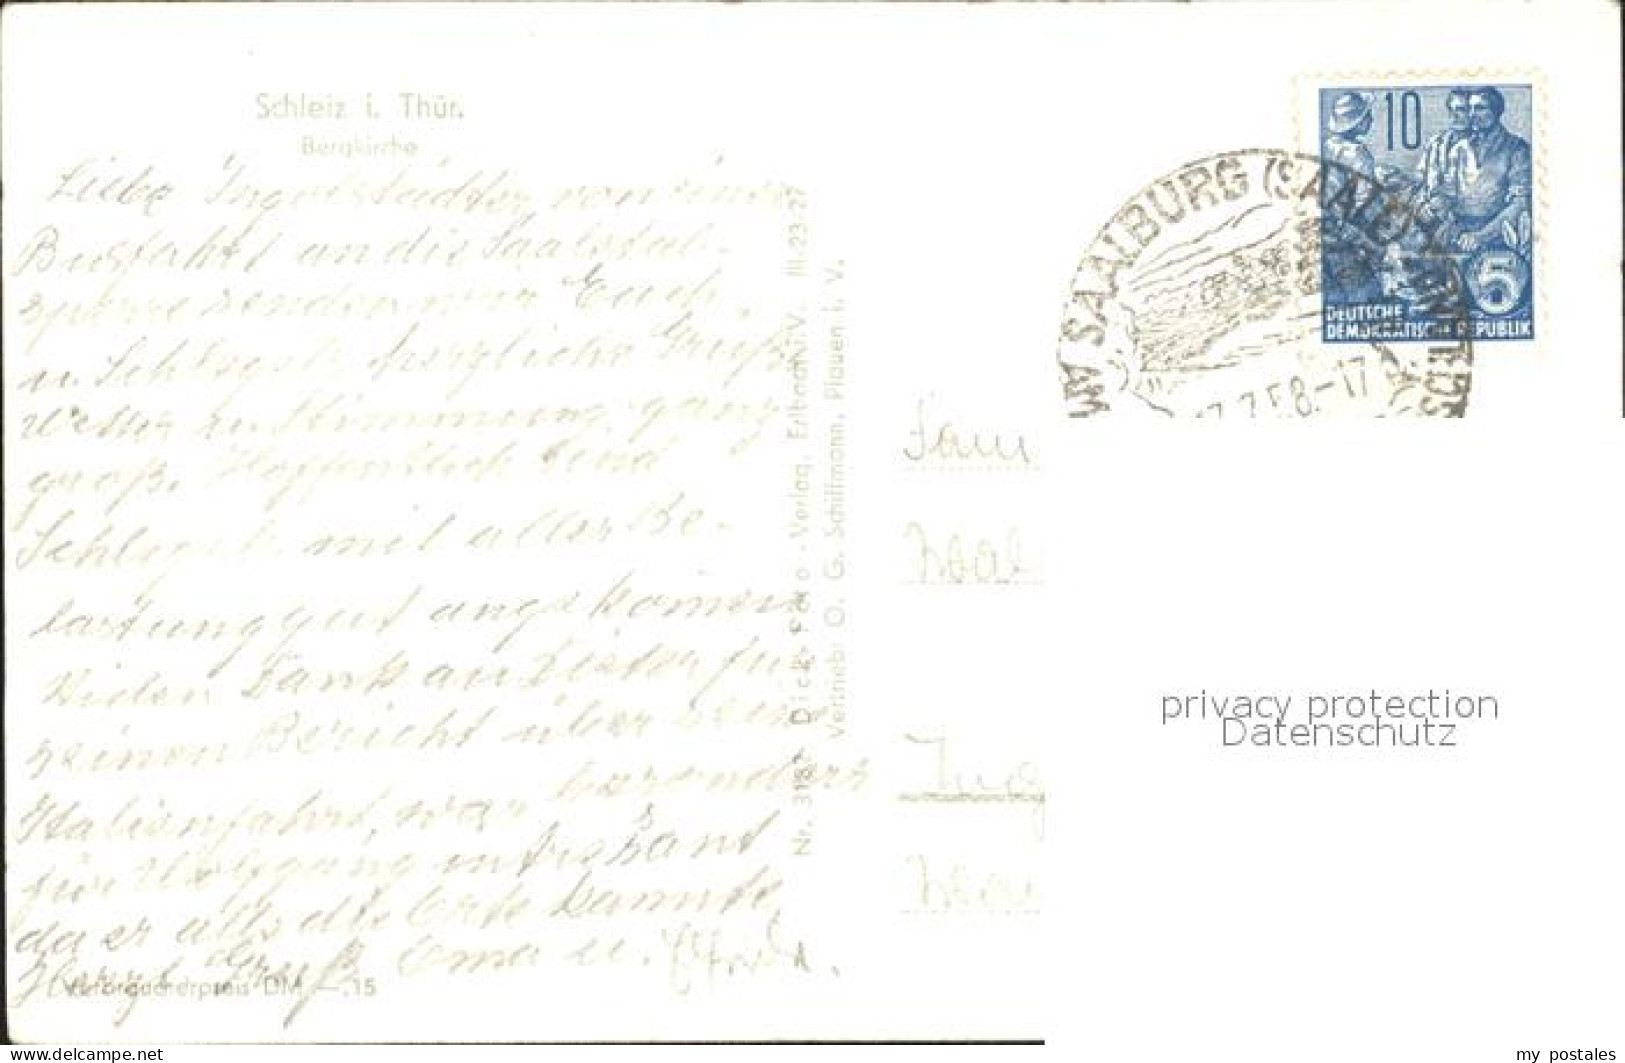 Schleiz i. Thür.
Bergkirche
Liebe Ingolstädter, von einer
Busfahrt an die Saaletal-
sperre senden wir Euch
u. Schlegels herzliche Grüße
Wetter u. Stimmung ganz
groß. Hoffentlich sind
Schlegels mit aller Be-
lastung gut angekommen
Vielen Dank an Dieter für
seinen Bericht über seine
Italienfahrt, war besonders
für Wolfgang intressant
da er alls die Orte kannte.
Herzl. Gruß Oma u.
Verbraucherpreis DM —,15
Nr. 3187 Dick-Foto-Verlag, Erlbach i. V. III-23-27
Vertrieb: O. G. Schiffmann, Plauen i. V.
10
5
DEUTSCHE
DEMOKRATISCHE REPUBLIK
SAALBURG (SAALE)
7.58.-17
Fam
Ing
privacy protection
Datenschutz
my postales
www.delcampe.net